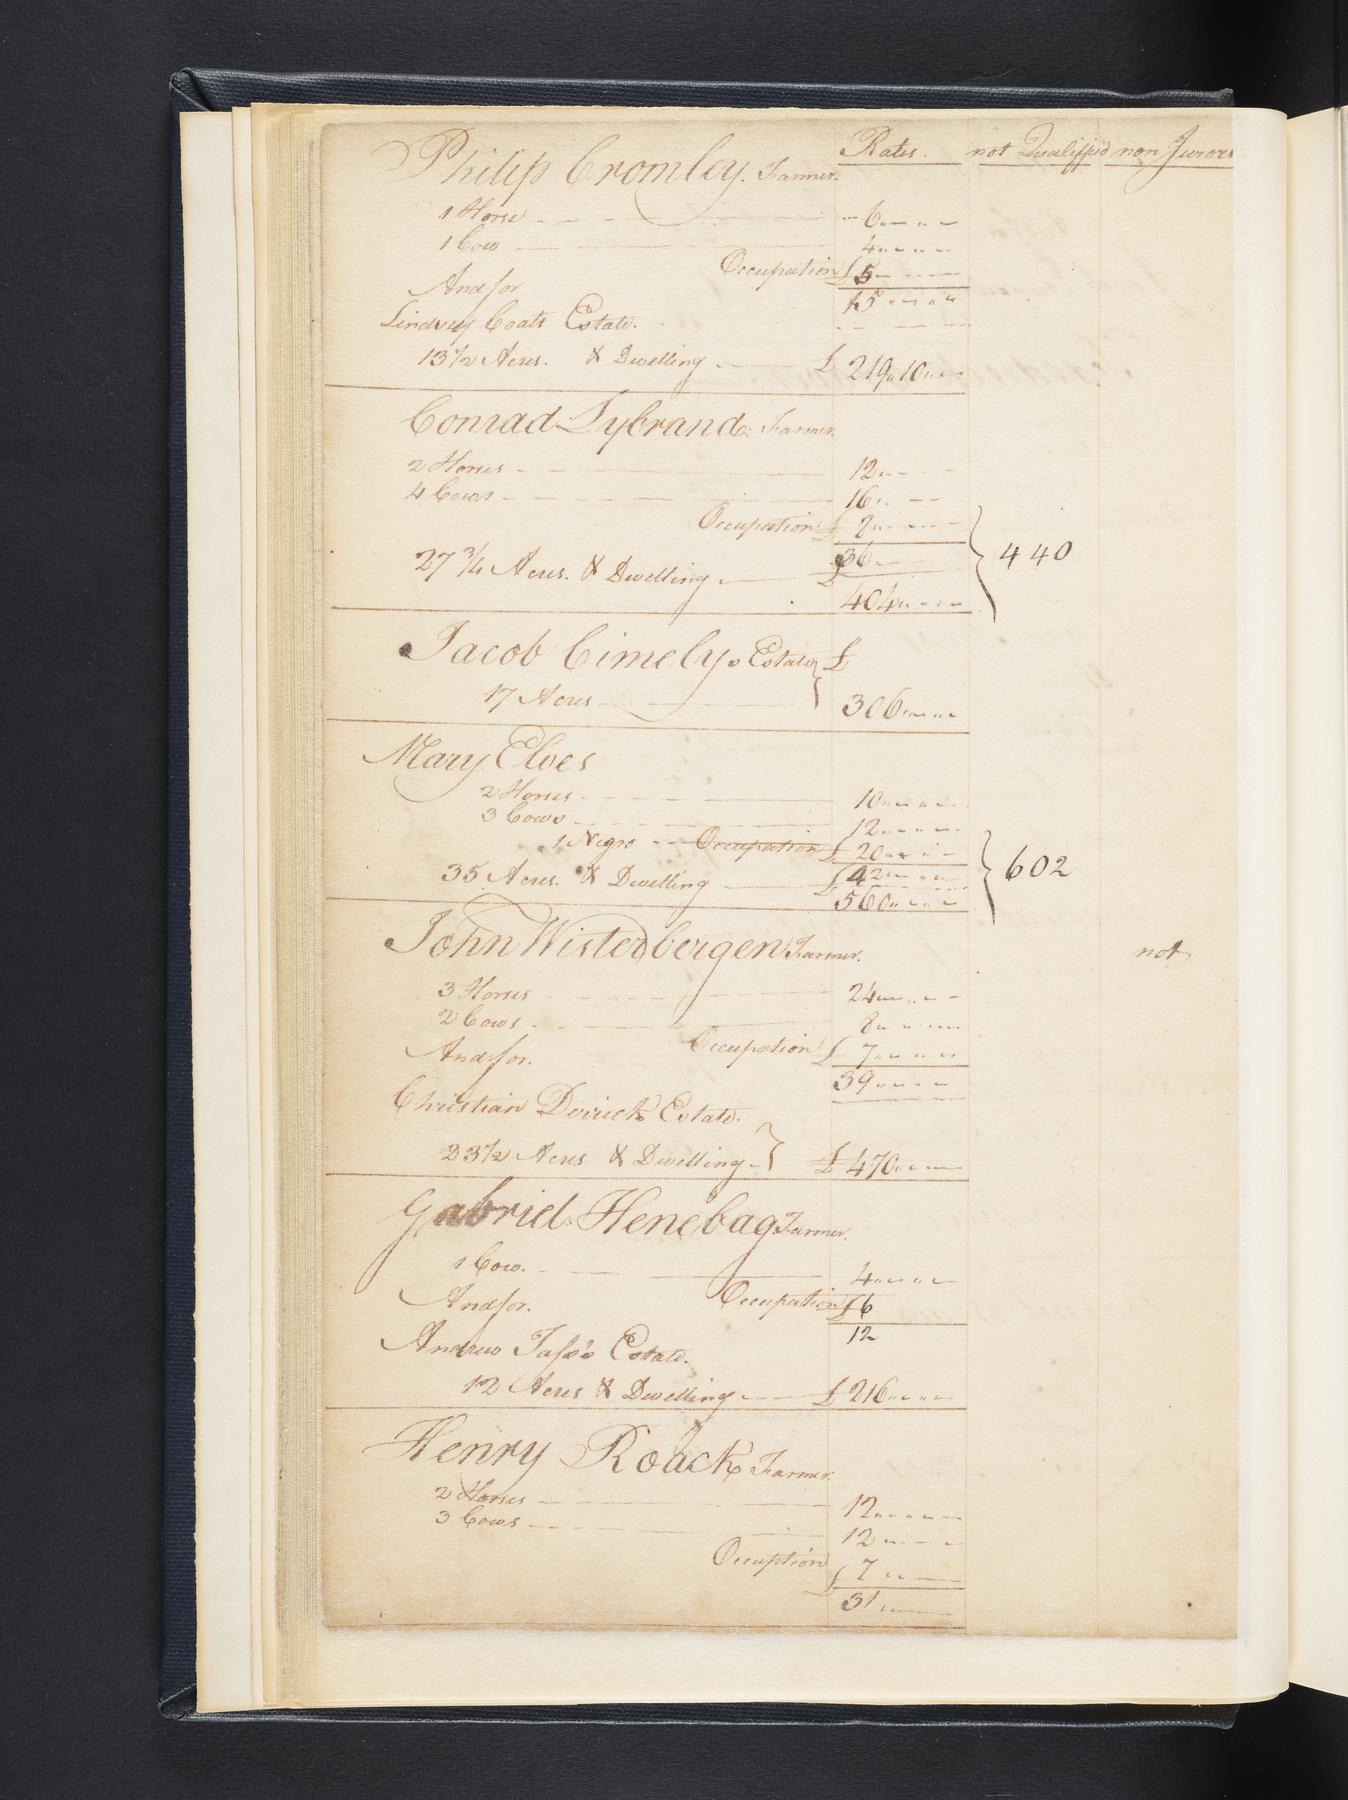 Rates. not Qualified non Jurors
Philip Cromley. Farmer.
1 Horse 6
1 Cow 4
Occupation £ 5
And for 15
Lindsey Coats Estate.
13 1/2 Acres. & Dwelling £ 219 " 10
Conrad Lybrand. Farmer.
2 Horses 12
4 Cows 16
Occupation £ 8
36 440
27 3/4 Acres. & Dwelling £ 404
Jacob Cimely's Estate £
17 Acres 306
Mary Elves
2 Horses 10
3 Cows 12
1 Negro Occupation £ 20
42 602
35 Acres. & Dwelling £ 560
John Wisterbergen Farmer. not
3 Horses 24
2 Cows 8
Occupation £ 7
And for. 39
Christian Derrick Estate.
23 1/2 Acres & Dwelling £ 470
Gabriel Henebag Farmer.
1 Cow. 4
And for. Occupation £ 6
12
Andrew Estate.
12 Acres & Dwelling £ 216
Henry Roack Farmer.
2 Horses 12
3 Cows 12
Occuption £ 7
31